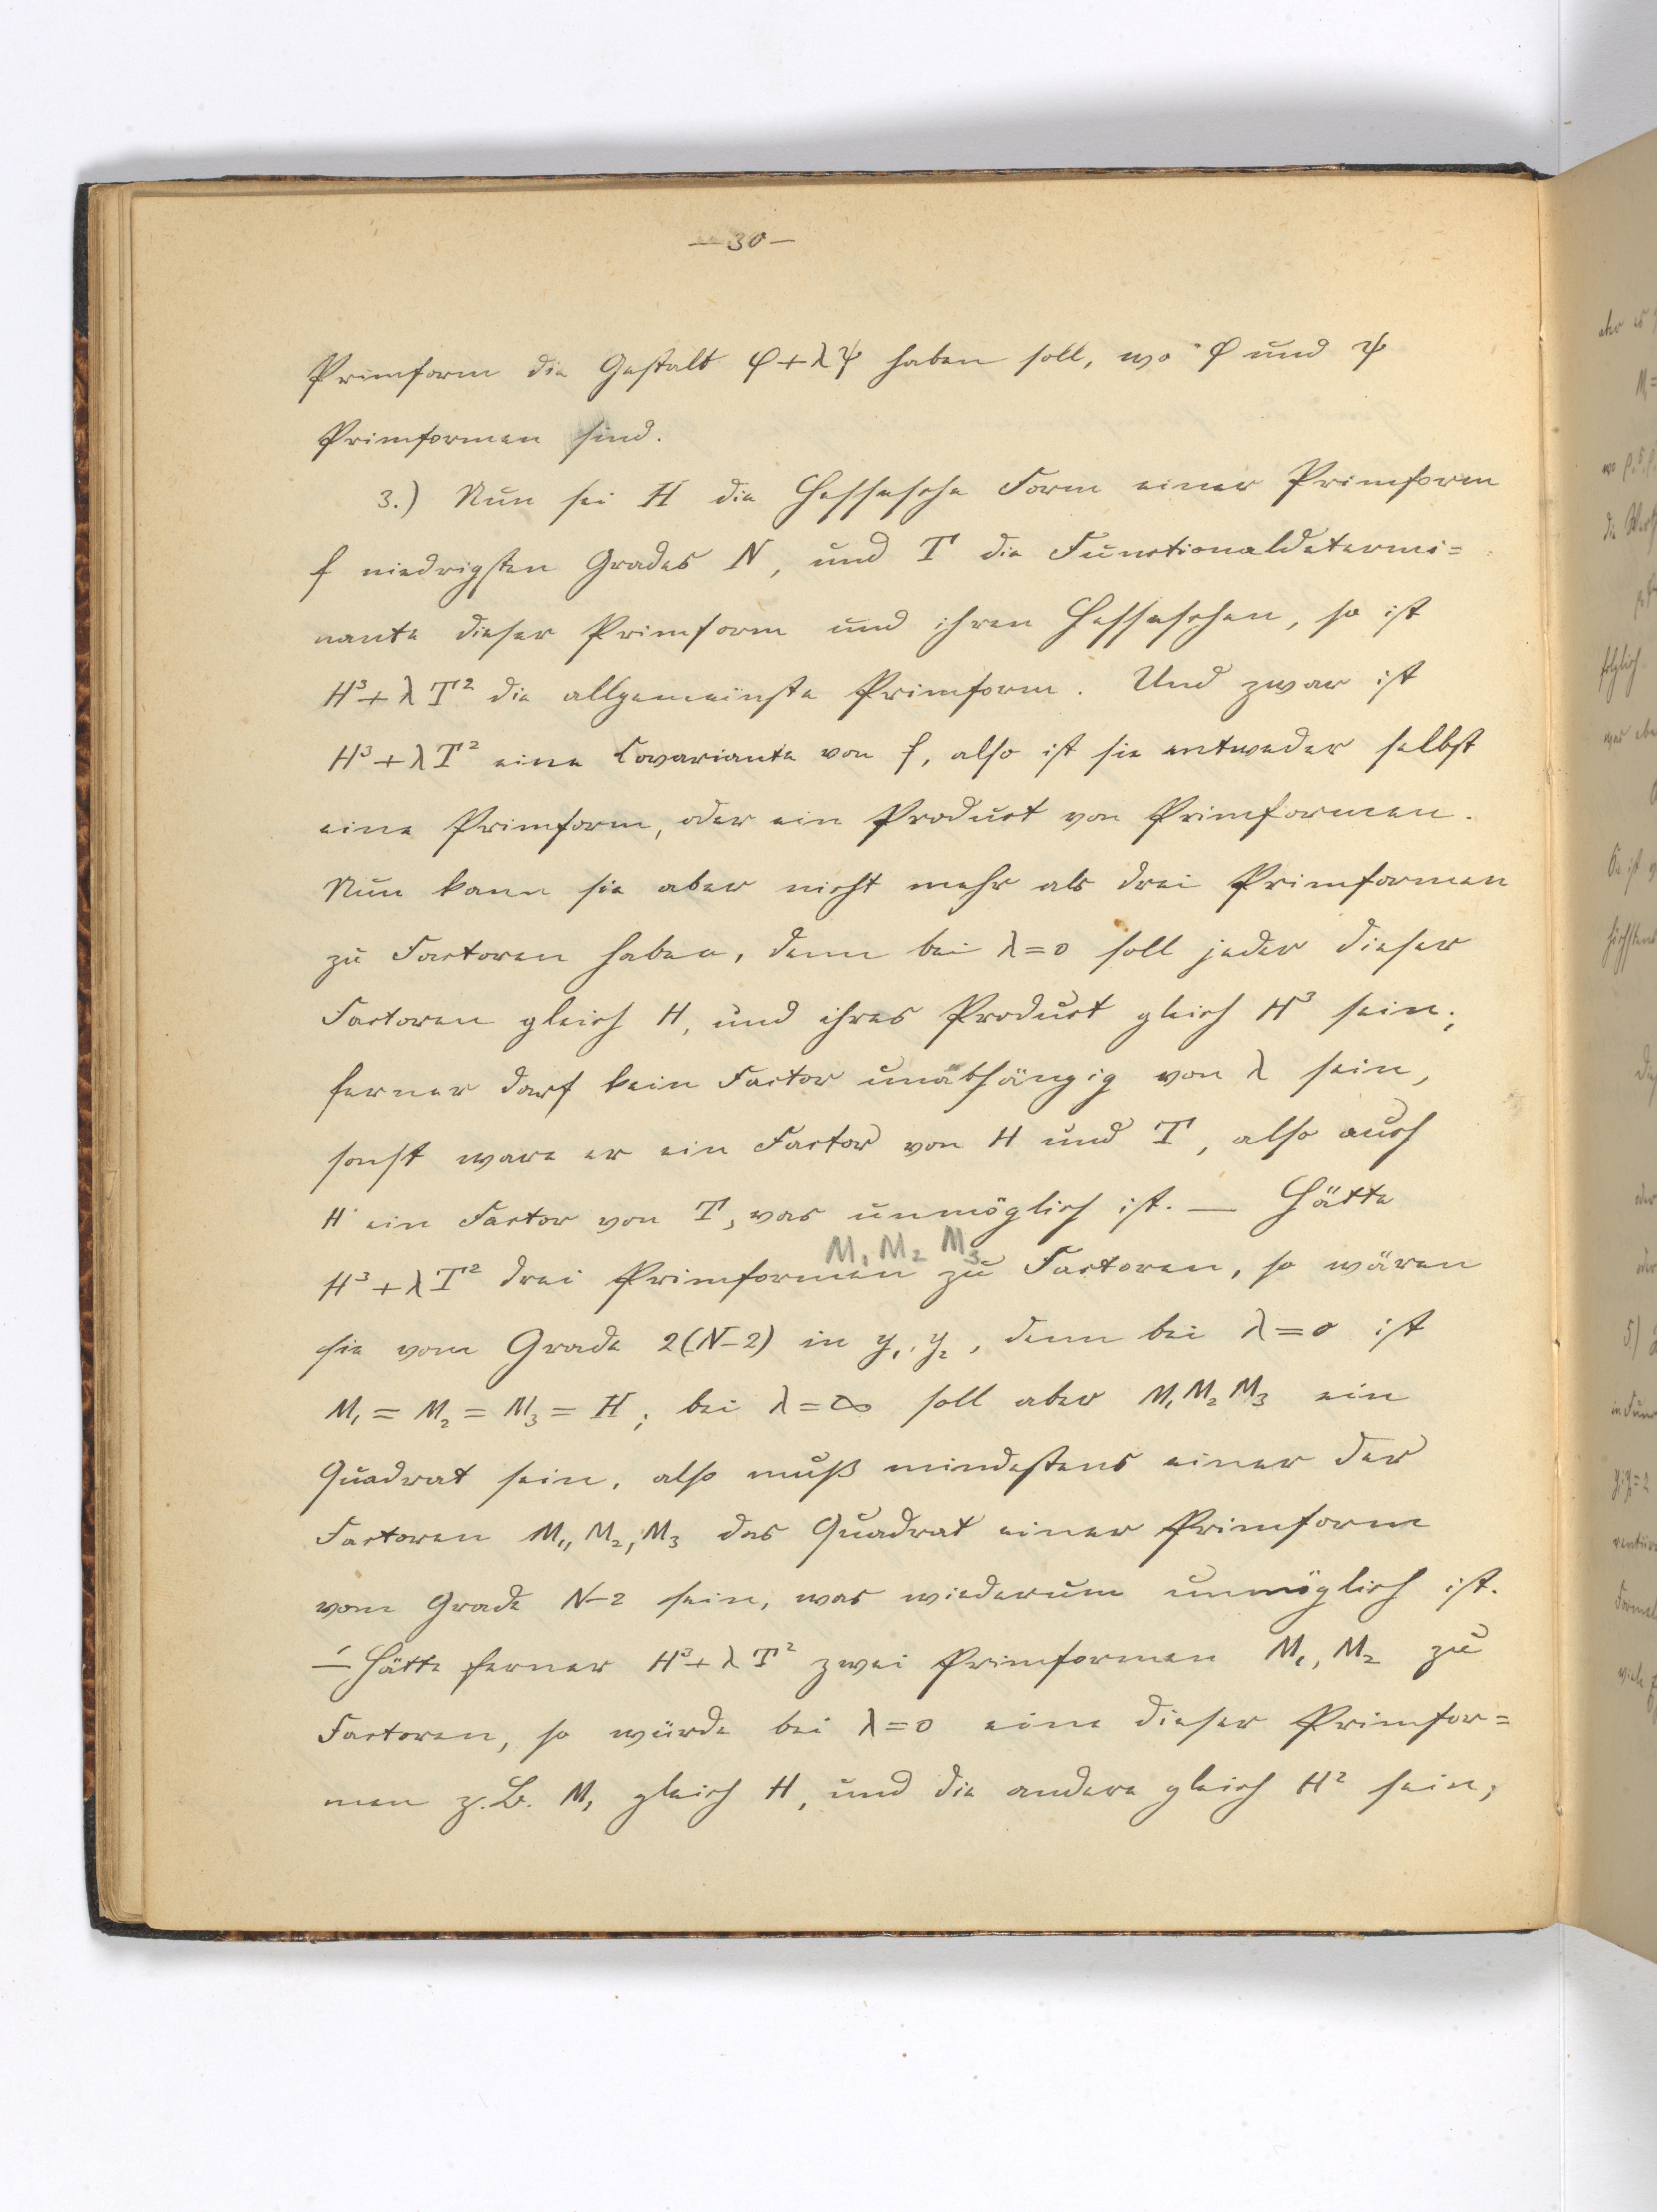 — 30 —
Primform die Gestalt φ + λψ haben soll, wo φ und ψ
Primformen sind.
3.) Nun sei H die Hessesche Form einer Primform
f niedrigsten Grades N, und T die Functionaldetermi=
nante dieser Primform und ihren Hesseschen, so ist
H³ + λT² die allgemeinste Primform. Und zwar ist
H³ + λT² eine Covariante von f, also ist sie entweder selbst
eine Primform, oder ein Product von Primformen.
Nun kann sie aber nicht mehr als drei Primformen
zu Factoren haben, denn bei λ = 0 soll jeder dieser
Factoren gleich H, und ihres Product gleich H³ sein;
ferner darf kein Factor unabhängig von λ sein,
sonst ware er ein Factor von H und T, also auch
H ein Factor von T, was unmöglich ist. — Hätte
M₁ M₂ M₃
H³ + λT² drei Primformen zu Factoren, so wären
sie vom Grade 2(N-2) in y₁, y₂, denn bei λ = 0 ist
M₁ = M₂ = M₃ = H; bei λ = ∞ soll aber M₁ M₂ M₃ ein
Quadrat sein, also muß mindestens einer der
Factoren M₁, M₂, M₃ das Quadrat einer Primform
vom Grade N-2 sein, was wiederum unmöglich ist.
— Hätte ferner H³ + λT² zwei Primformen M₁, M₂ zu
Factoren, so würde bei λ = 0 eine dieser Primfor=
men z.B. M₁ gleich H, und die andere gleich H² sein;